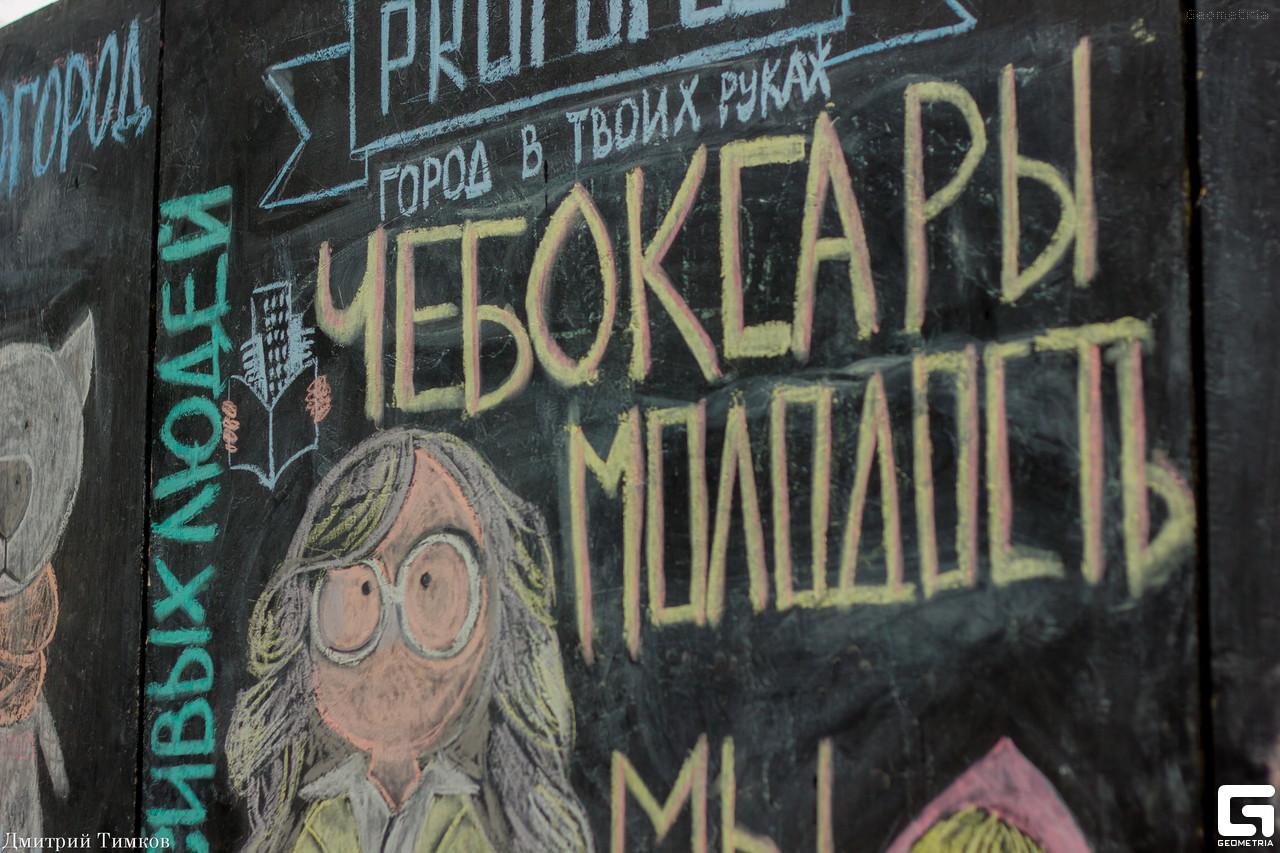 Geometria
PROГОРОД
ГОРОД В ТВОИХ РУКАХ
ЧЕБОКСАРЫ
МОЛОДОСТЬ
МЫ
ЛЮДЕЙ
Дмитрий Тимков
GEOMETRIA